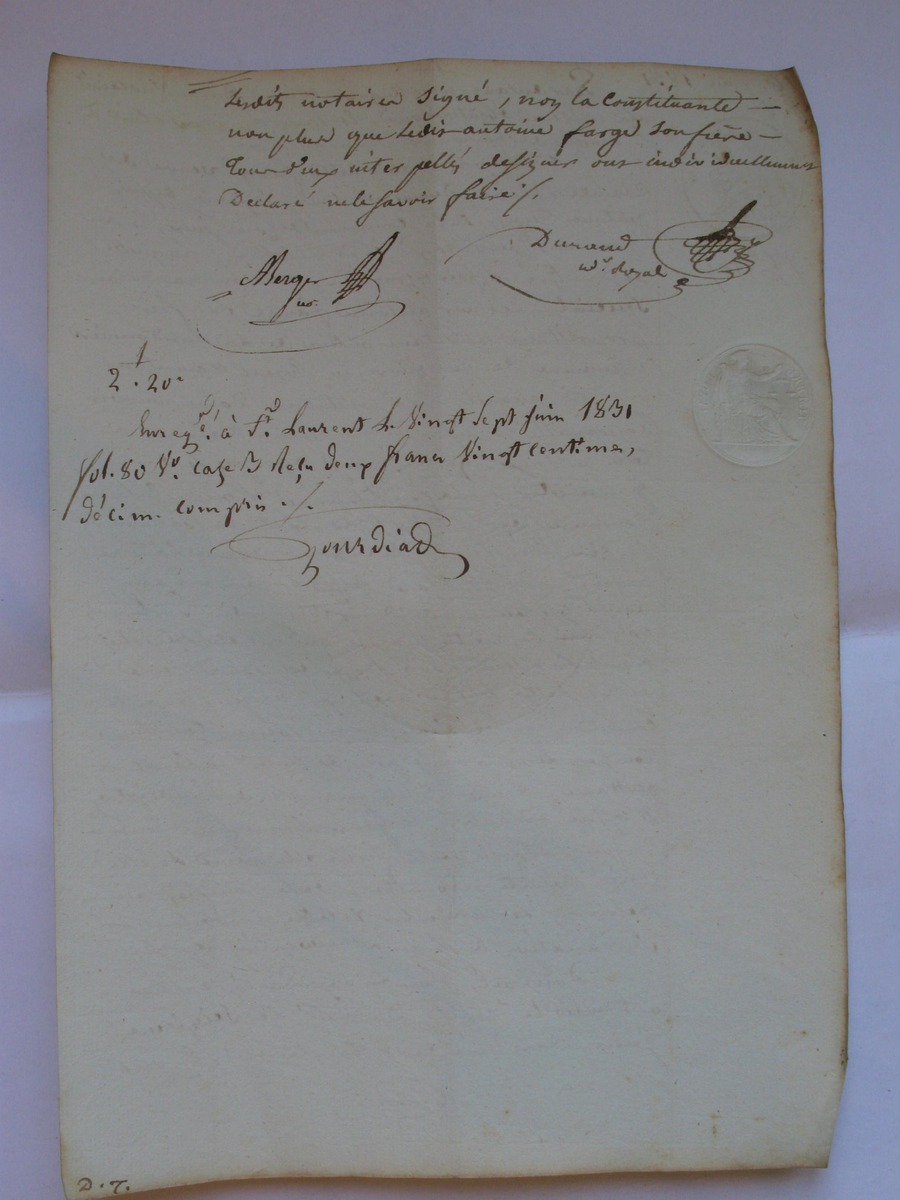 Lesdits notaires signé, non la Constituante —
non plus que Ledit antoine farge son frère —
Tous deux interpellés designer ont individuellement
Déclaré nele savoir faire ./.
Durand
nre. Royal
Merger
nre.
1
2 . 20c
Enregé. à St. Laurent Le Vingt Sept juin 1831
fol. 80 Vo. Case 3 Reçu deux francs Vingt Centimes,
décim. compris ./.
Gourdiat
D. T.